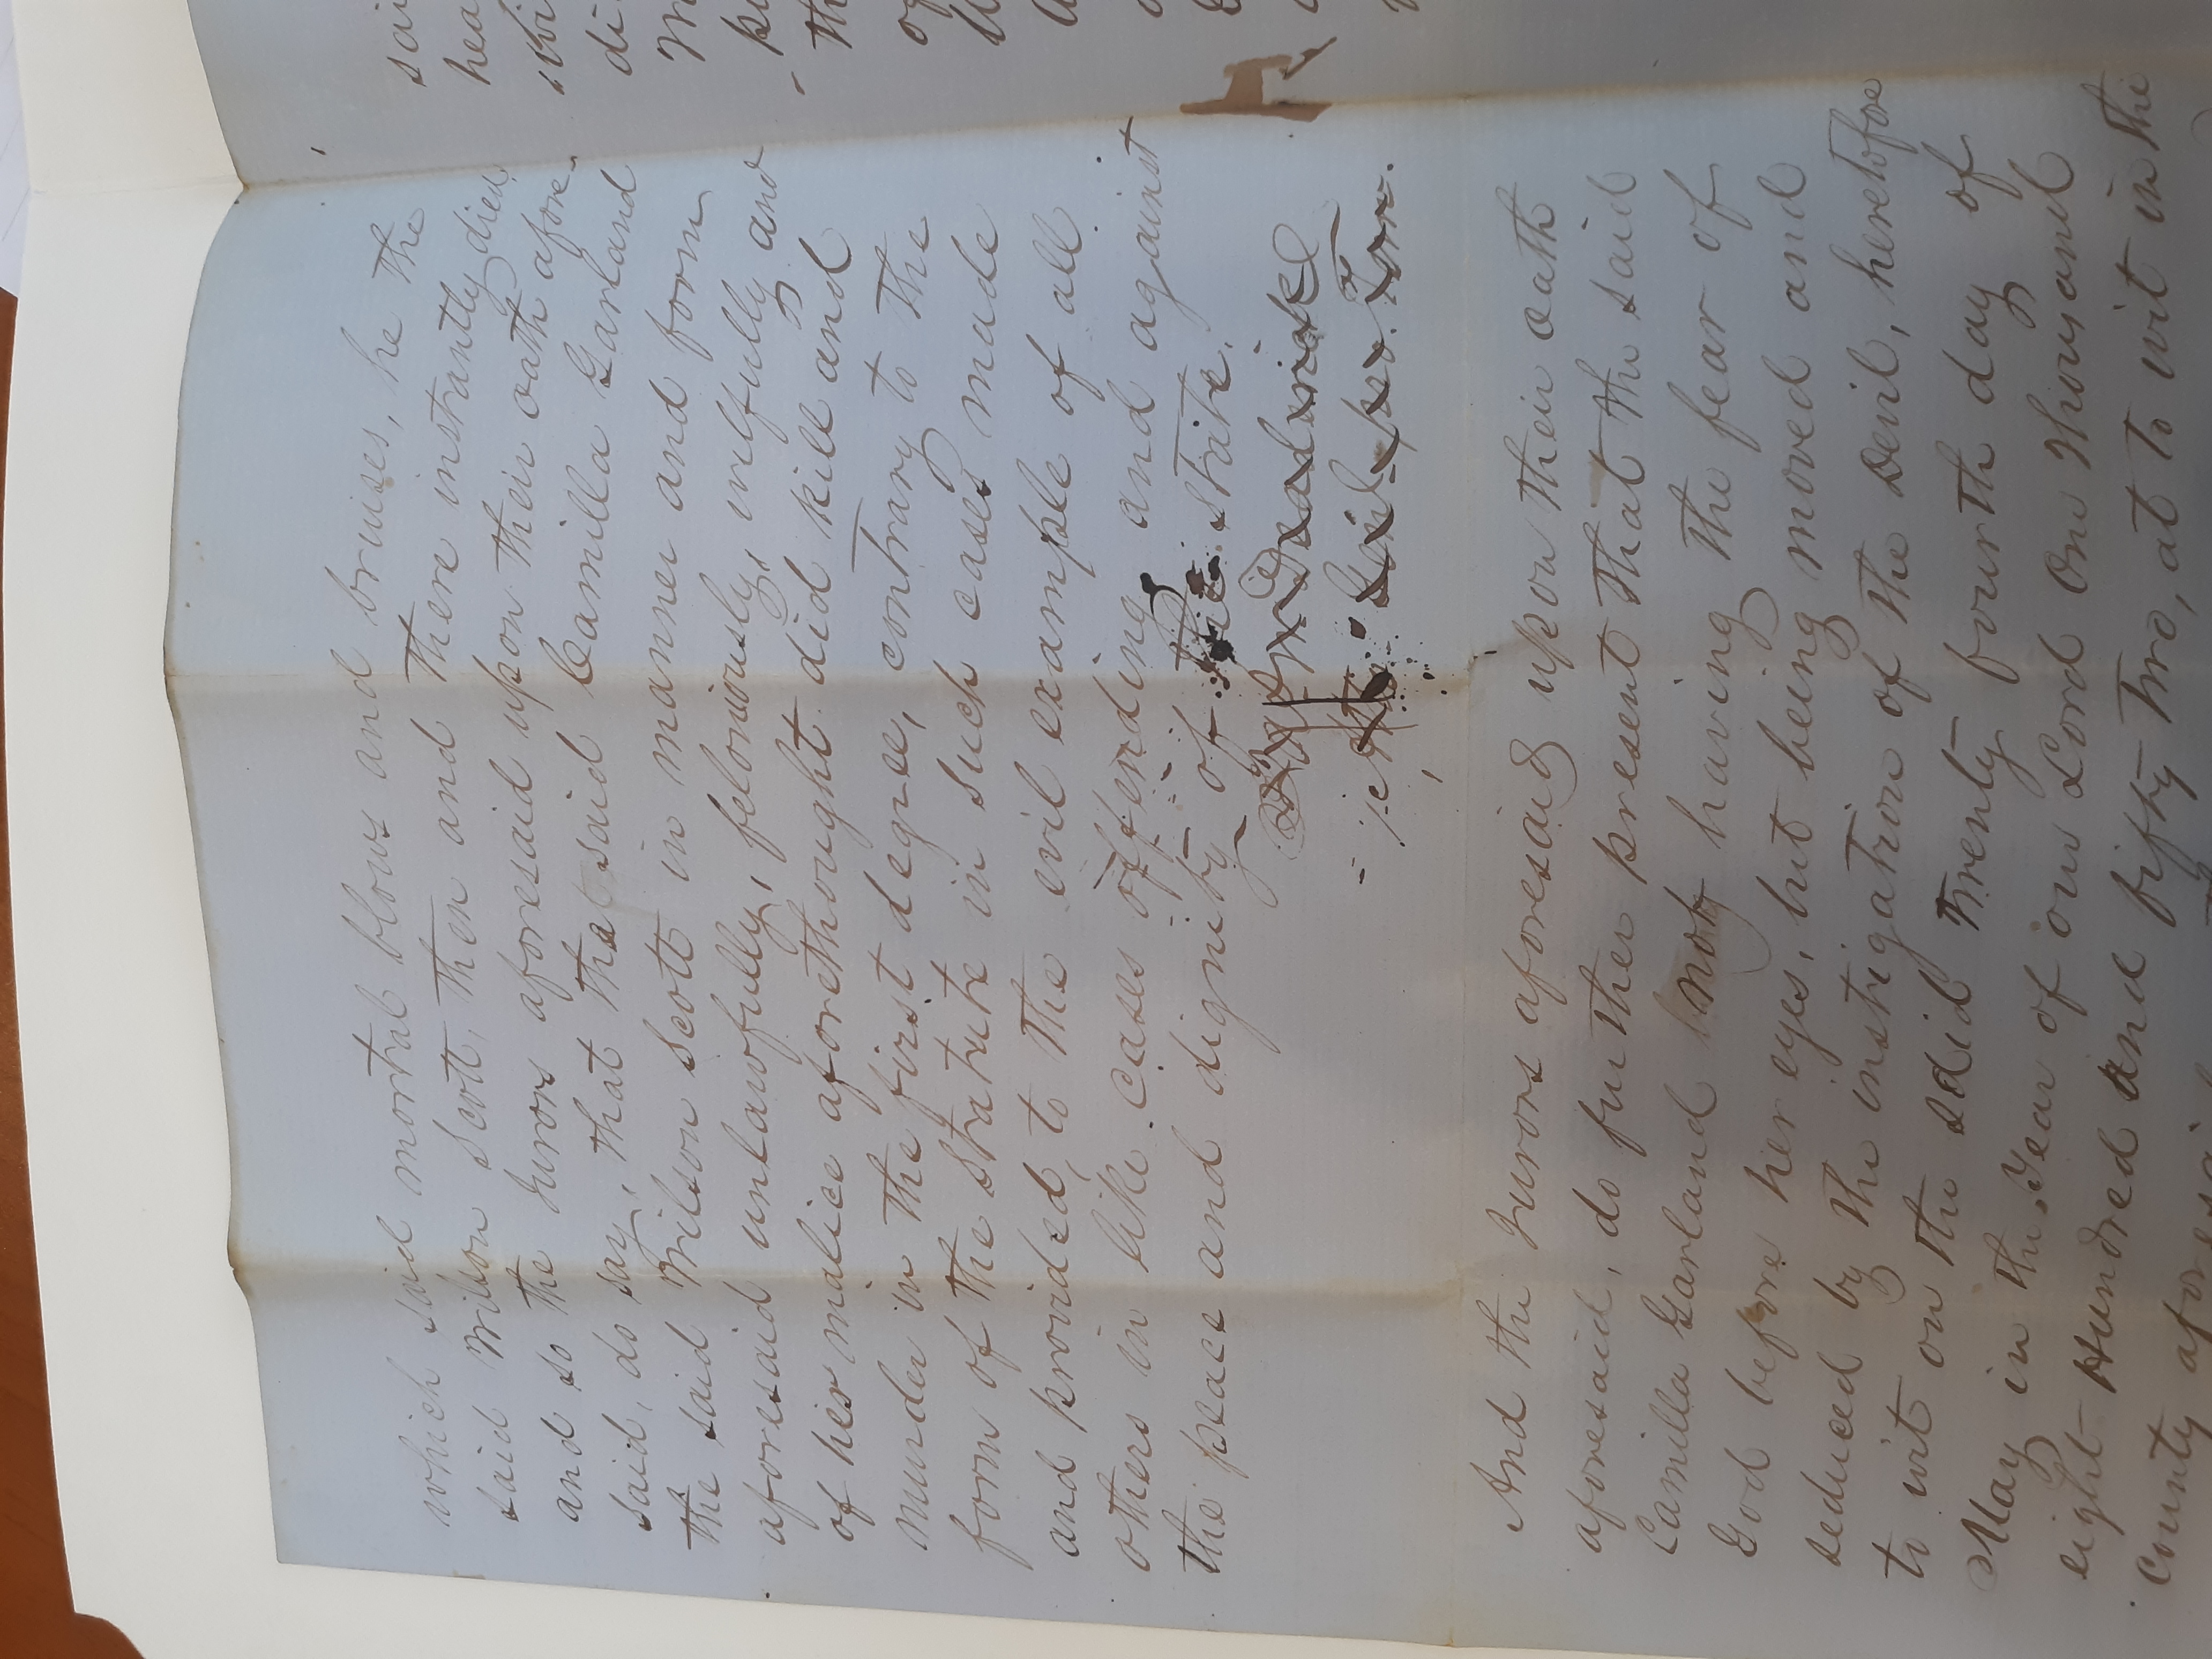 which said mortal blows and bruises, he the
said Wilson Scott, then and there instantly died,
and so the Jurors aforesaid upon their oath afore-
said, do say, that that said Camilla Garland
the said Wilson Scott in manner and form
aforesaid unlawfully, feloniously, wilfully and
of her malice aforethought did kill and
murder in the first degree, contrary to the
form of the Statute in such cases made
and provided, to the evil example of all
others in like cases offending, and against
the peace and dignity of the State.
W. Deaderick
Atto. Genl. pro. Tem.
And the Jurors aforesaid upon their oath
aforesaid, do further present that the said
Camilla Garland not having the fear of
God before her eyes, but being moved and
seduced by the instigation of the Devil, heretofore
to wit on the said Twenty fourth day of
May in the Year of our Lord One Thousand
eight Hundred and fifty Two, at to wit in the
county aforesaid
sai
hea
di
th
of